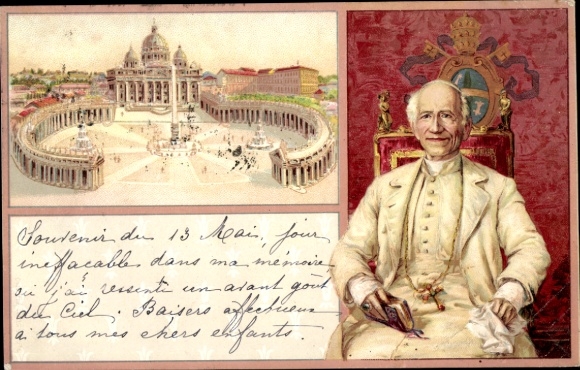 Souvenir du 13 Mai, jour
ineffacable dans ma mémoire
où j'ai ressenti un avant goût
du Ciel. Baisers affectueux
à tous mes chers enfants.